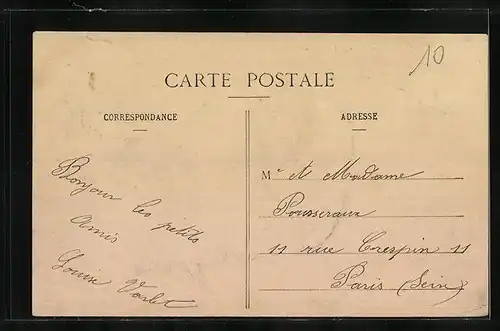 10
CARTE POSTALE
CORRESPONDANCE
ADRESSE
Bonjour les petits
amis
Louise Varlet
Mr et Madame
Pousseraux
11 rue Crespin 11
Paris (Seine)